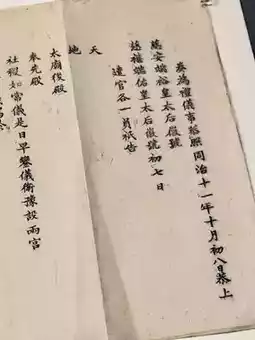 奏為禮儀事恭照同治十一年十月初八日恭上
慈安端裕皇太后徽號
慈禧端佑皇太后徽號初七日
遣官各一員祗告
天 地
太廟後殿
奉先殿
社稷如常儀是日早鑾儀衛豫設兩宮